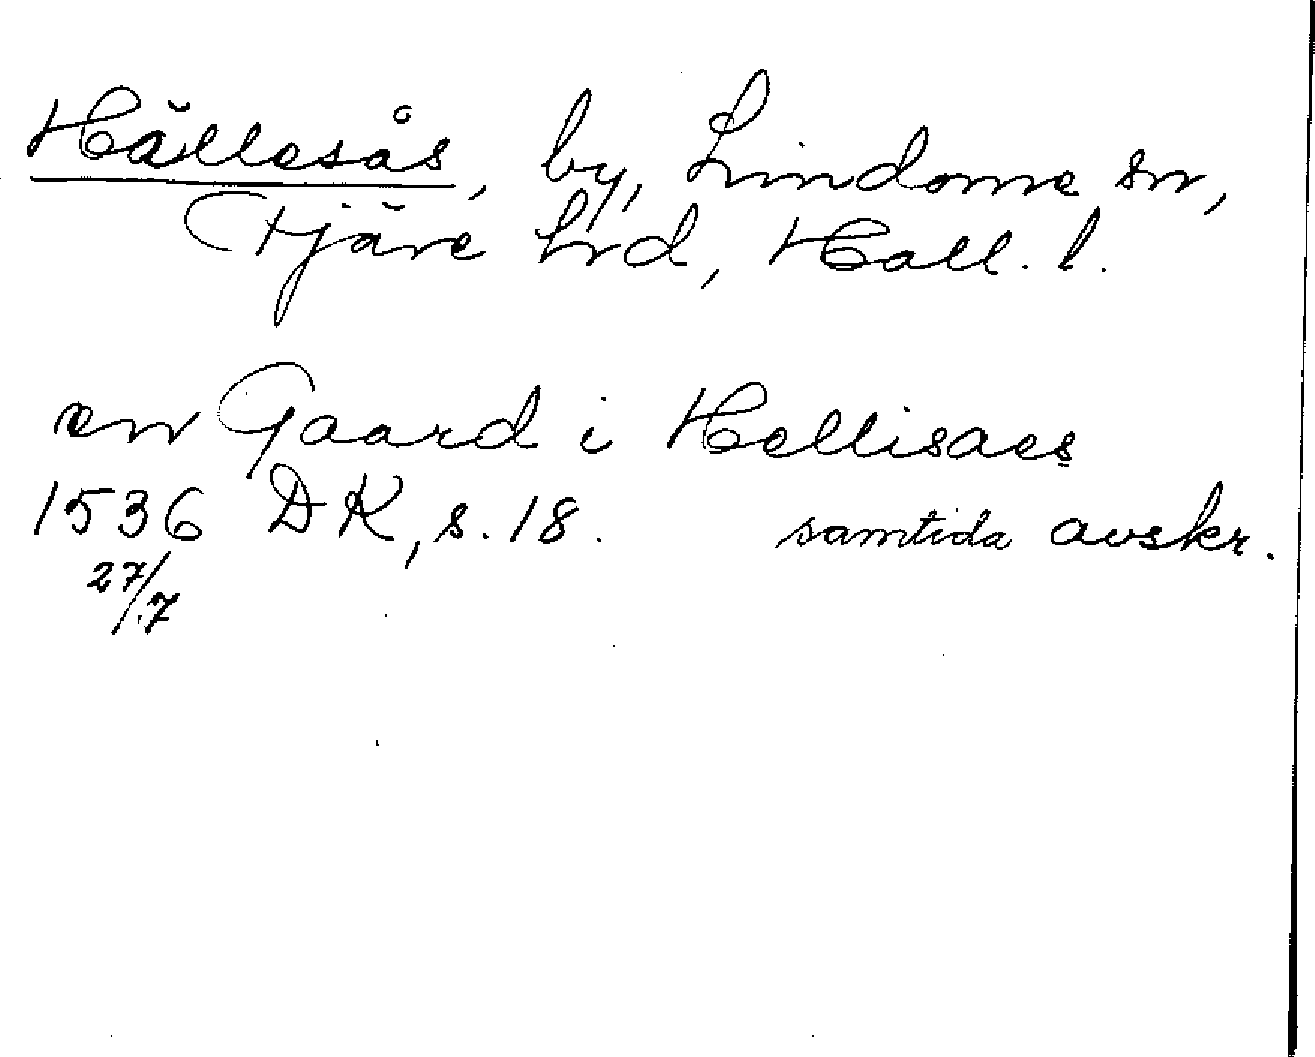 Hällesås, by, Lindome sn,
Fjäre hrd, Hall. l.
en Gaard i Hellisaes
1536 DK, s. 18. samtida avskr.
27/7